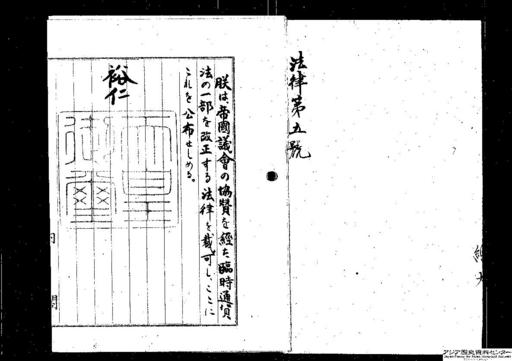 法律第五號
朕は、帝國議會の協贊を經た臨時通貨
法の一部を改正する法律を裁可し、ここに
これを公布せしめる。
裕仁
天皇
御璽
内
閣
アジア歴史資料センター